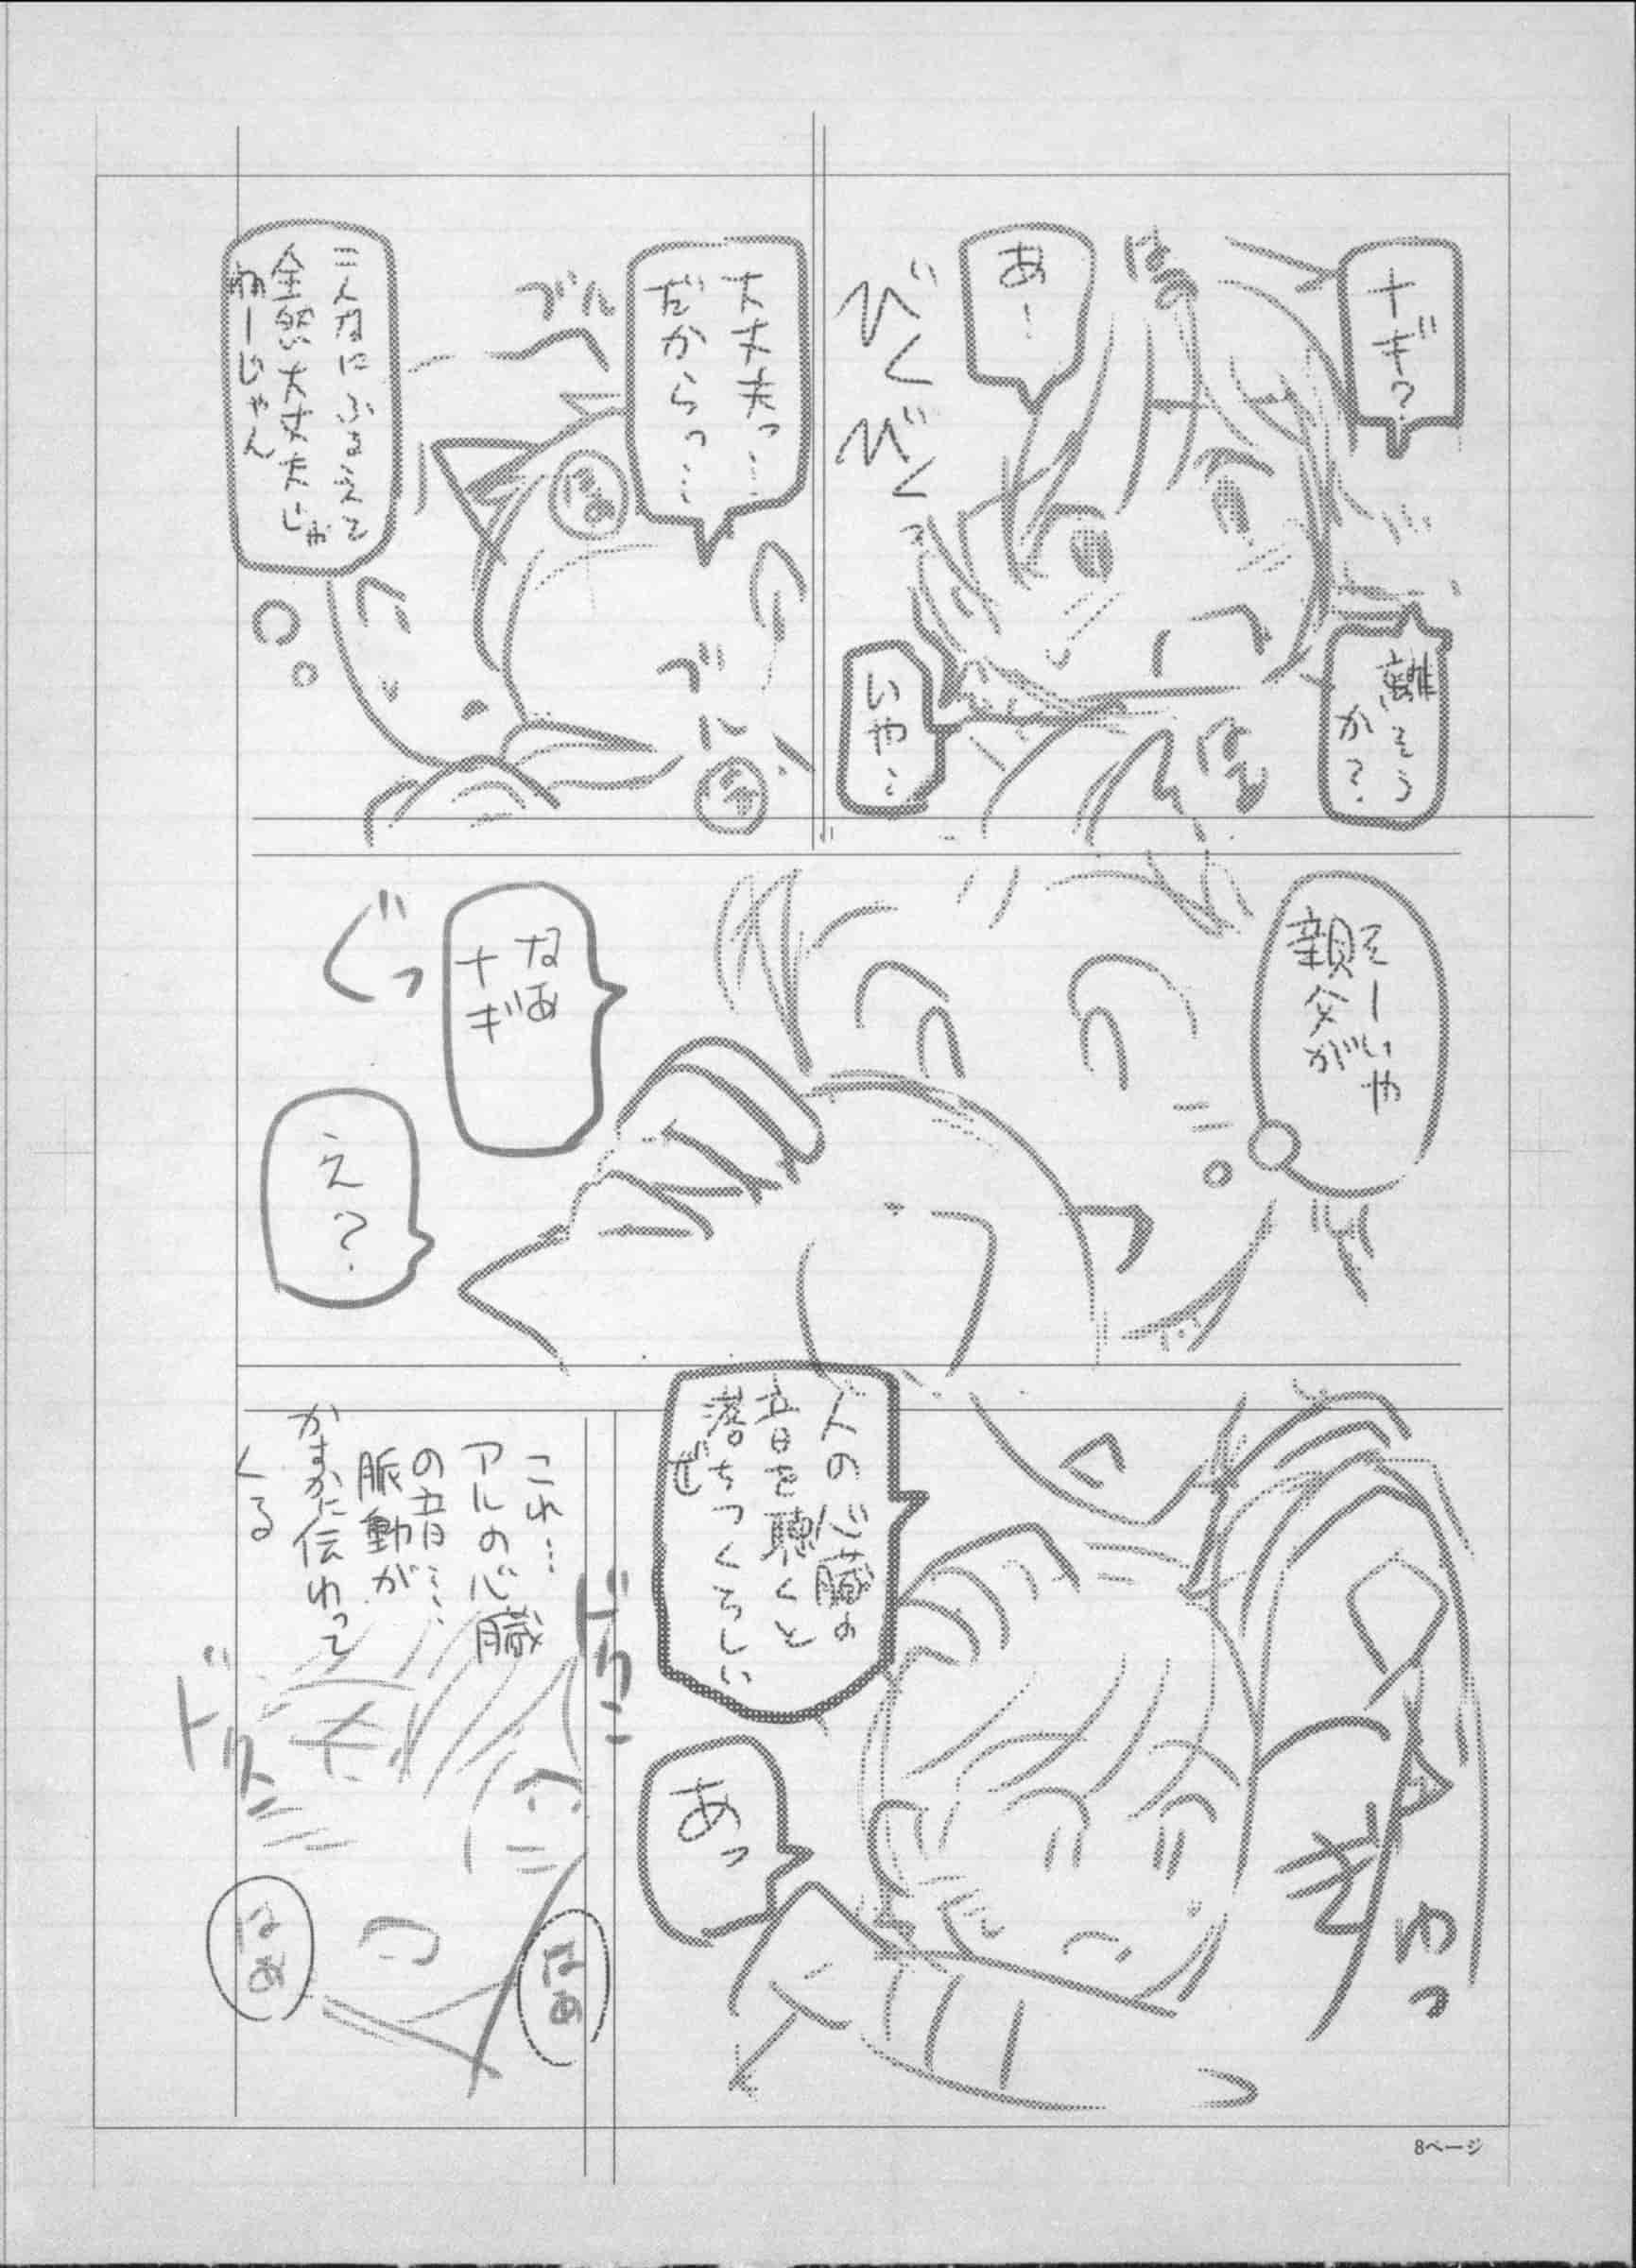 ナギ?
離そう
か?
あ!
いや…
びくびく
大丈夫っ…
だからっ…
ブル
はぁ
ブル
こんなにふるえて
全然大丈夫じゃ
ねーじゃん
そーいや
親父が
なあ
ナギ
ぐっ
え?
人の心臓の
音を聴くと
落ちつくらしい
ぜ
あっ
ぎゅっ
これ…
アルの心臓
の音…
脈動が
かすかに伝わって
くる
ドクン
はぁ
はぁ
8ページ